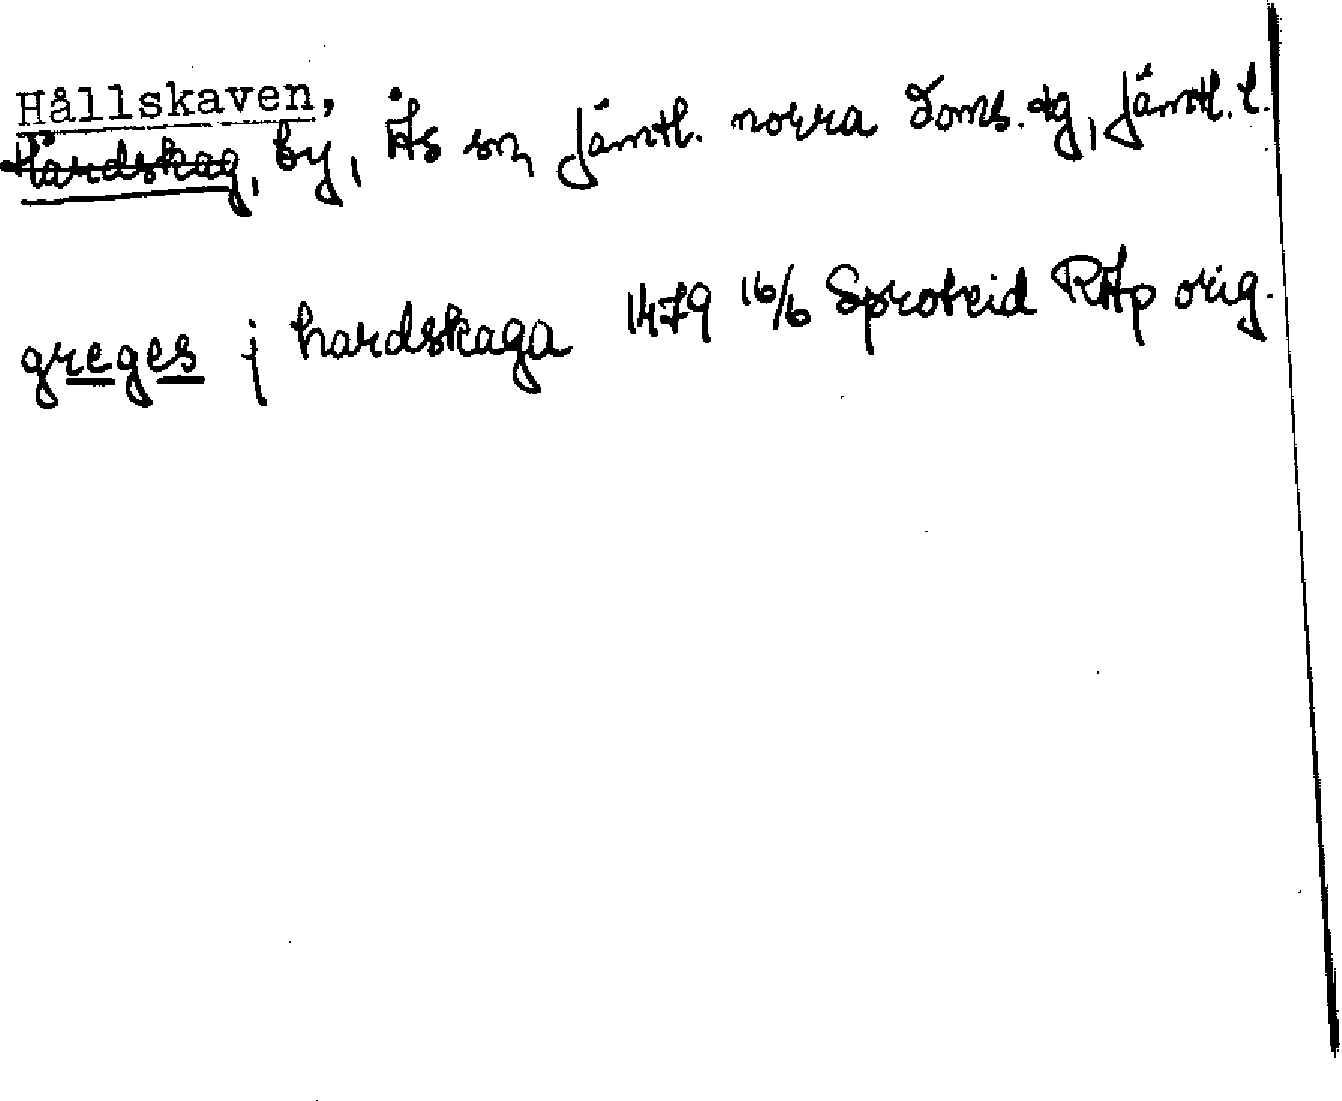 Hållskaven,
Hårdskag, by, Ås sn Jämtl. norra doms. dg, Jämtl. l.
greges j hardskaga 1479 16/6 Sproteid RAp orig.